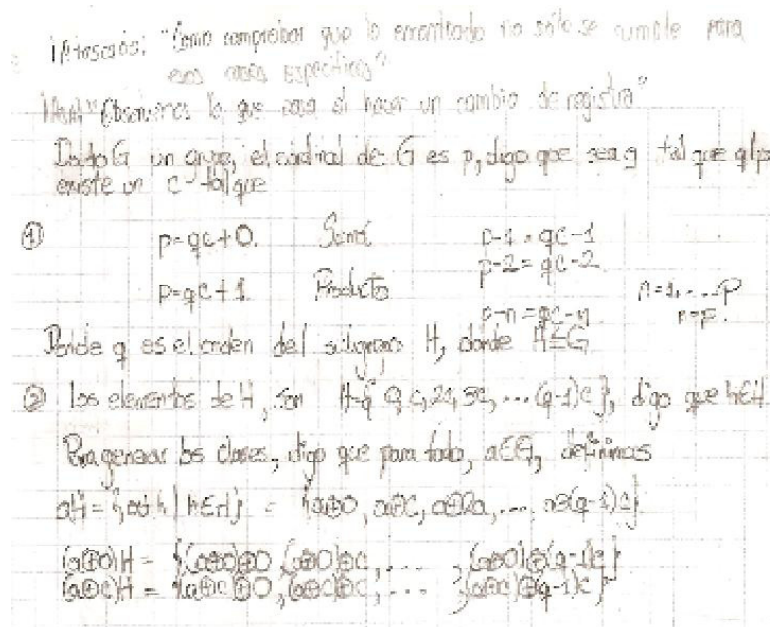 ¡Atascados! "Como comprobar que lo encontrado no sólo se cumple para
esos casos específicos"
¡Ajá! "Observemos lo que pasa al hacer un cambio de registro"
Dado G un grupo, el cardinal de G es p, digo que sea q tal que q|p
existe un c tal que
① p=qc+0. Suma p-1=qc-1
p-2=qc-2
p=qc+1. Producto
p-n=qc-n n=1,...p
Donde q es el orden del subgrupo H, donde H≤G
② Los elementos de H, son H={0,c,2c,3c,...(q-1)c}, digo que h∈H
Para generar las clases, digo que para todo, a∈G, definimos
aH={a⊕h | h∈H} = {a⊕0, a⊕c, a⊕2c, ... a⊕(q-1)c}
(a⊕0)H = {(a⊕0)⊕0, (a⊕0)⊕c, ... , (a⊕0)⊕(q-1)c}
(a⊕c)H = {(a⊕c)⊕0, (a⊕c)⊕c, ... , (a⊕c)⊕(q-1)c}